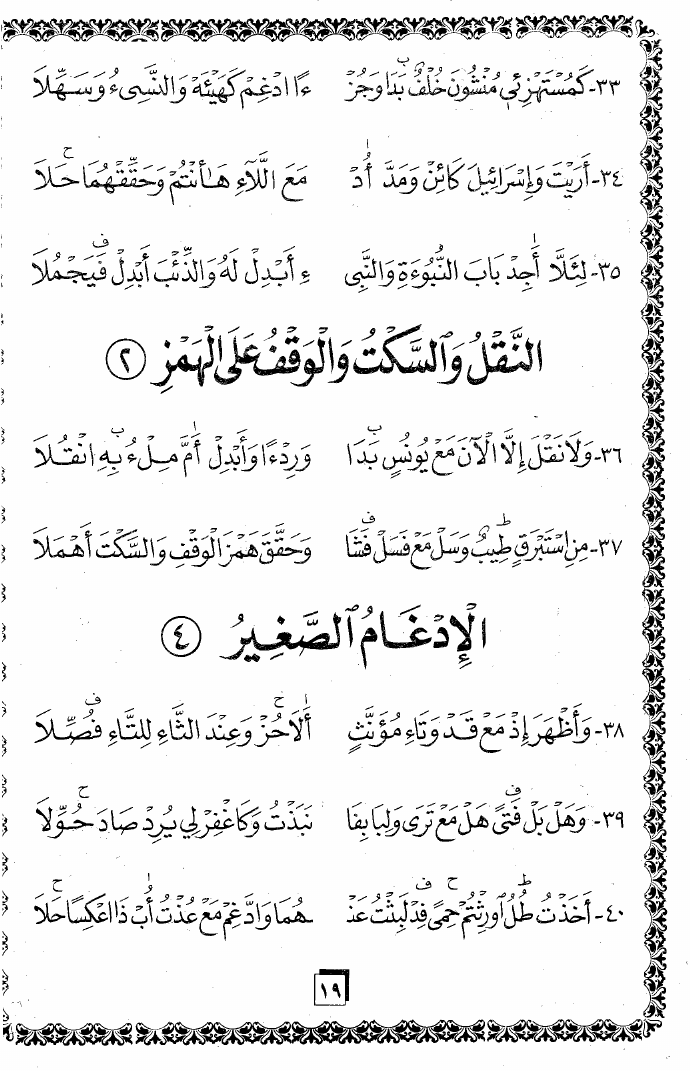 ٣٣- كَمُسْتَهْزِئِي مُنْشُونَ خُلْفٌ بَدَا وَجُزْ ءًا ادْغِمْ كَهَيْئَهْ وَالنَّسِيءُ وَسَهِّلَا
٣٤- أَرَيْتَ وَإِسْرَائِيلَ كَائِنْ وَمَدَّ أُدْ مَعَ اللَّاءِ هَاأَنْتُمْ وَحَقِّقْهُمَا حَلَا
٣٥- لِئَلَّا أَجِدْ بَابَ النُّبُوءَةِ وَالنَّبِي ءِ أَبْدِلْ لَهُ وَالذِّئْبَ أَبْدِلْ فَيَجْمُلَا
النَّقْلُ وَالسَّكْتُ وَالْوَقْفُ عَلَى الْهَمْزِ ٢
٣٦- وَلَا نَقْلَ إِلَّا الْآنَ مَعْ يُونُسٍ بَدَا وَرِدْءًا وَأَبْدِلْ أُمَّ مِلْءُ بِهِ انْقُلَا
٣٧- مِنِ اسْتَبْرَقٍ طِيبٌ وَسَلْ مَعْ فَسَلْ فَشَا وَحَقَّقَ هَمْزَ الْوَقْفِ وَالسَّكْتَ أَهْمَلَا
الْإِدْغَامُ الصَّغِيرُ ٤
٣٨- وَأَظْهَرَ إِذْ مَعْ قَدْ وَتَاءِ مُؤَنَّثٍ أَلَا حُزْ وَعِنْدَ الثَّاءِ لِلتَّاءِ فُصِّلَا
٣٩- وَهَلْ بَلْ فَتًى هَلْ مَعْ تَرَى وَلِبَا بِفَا نَبَذْتُ وَكَاغْفِرْ لِي يُرِدْ صَادَ حُوِّلَا
٤٠- أَخَذْتُ طُلُ اورِثْتُمْ حِمًى فِدْ لَبِثْتُ عَنْـ ـهُمَا وَادَّغِمْ مَعْ عُذْتُ أُبْ ذَا اعْكِسًا حَلَا
١٩